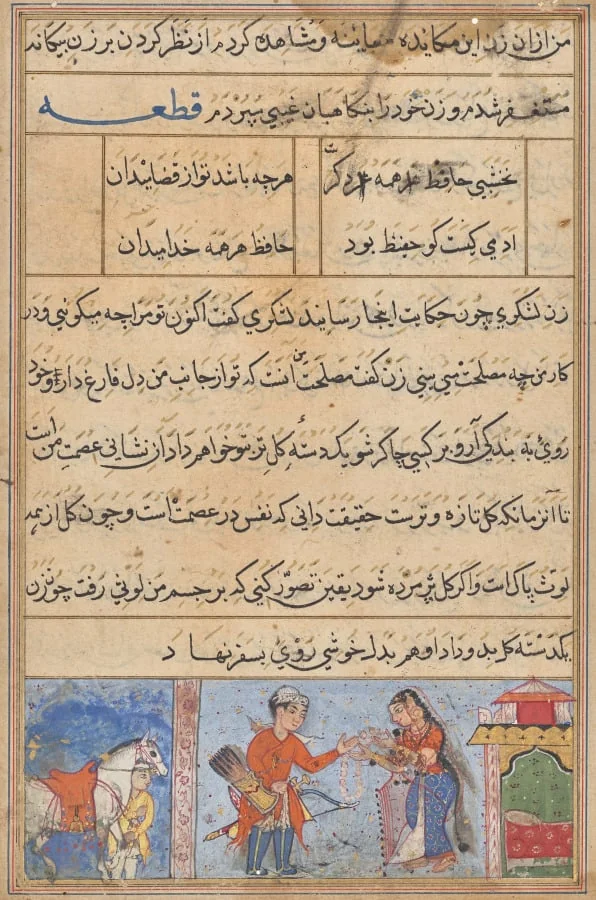 من ازان زن این مکایده معاینه و مشاهده کردم از نظر کردن بر زن بیکانه
مستغفر شدم و زن خود را بنکاهبان غیبی سپردم قطعه
نخشبی حافظ همه دکر هرچه باشد تو از قضا میدان
ادمی کیست کو حفیظ بود حافظ هر همه خدا میدان
زن لشکری چون حکایت اینجا رسانید لشکری کفت اکنون تو مرا چه میکوئی و در
کار من چه مصلحت می بینی زن کفت مصلحت من انست که تو از جانب من دل فارغ داری و خود
روی به بندکی آرو بر کسی چاکر شو یک دسته کل تر بتو خواهم داد از نشانی عصمت من است
تا آنزمانکه کل تازه و ترست حقیقت دانی که نفس در عصمت است و چون کل از همه
لوث پاک است و اکر کل پژمرده شود یقین تصور کنی که بر جسم من لوثی رفت چون زن
یکدسته کل بدو داد او هم بدل خوشی روی بسفر نهاد